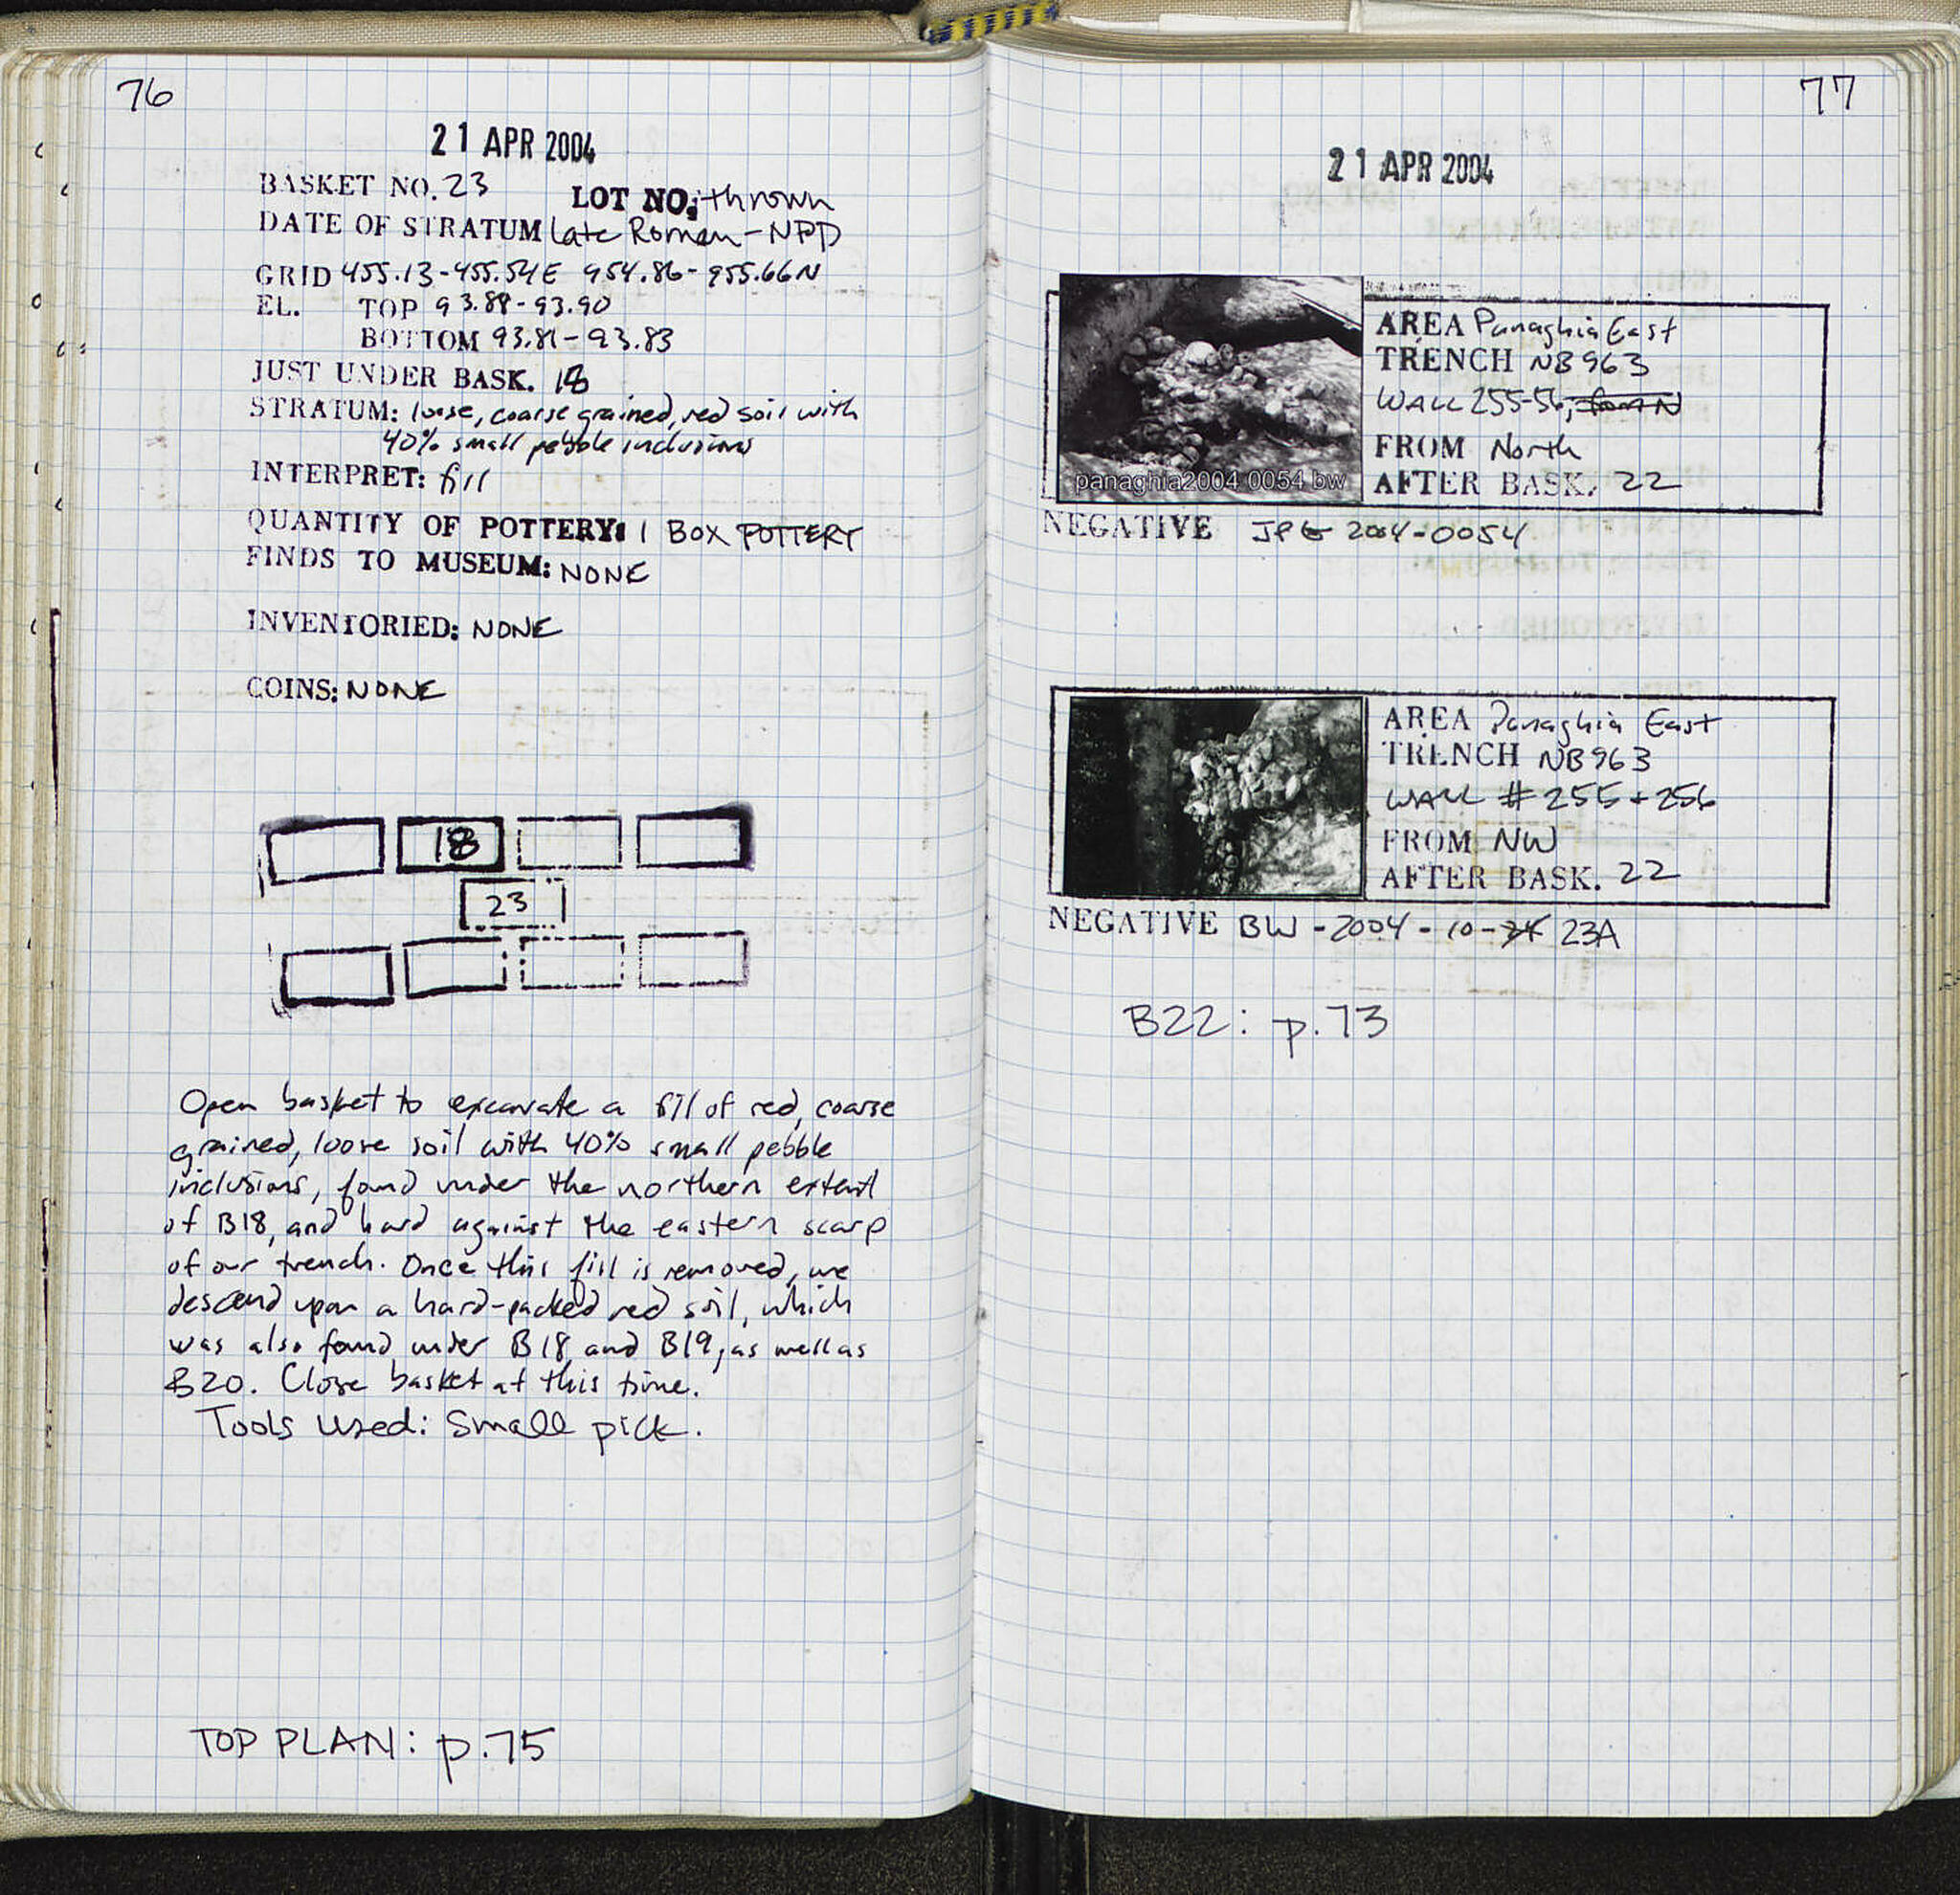 76
21 APR 2004
BASKET NO. 23 LOT NO: thrown
DATE OF STRATUM Late Roman - NPD
GRID 455.13-455.54E 954.86-955.66N
EL. TOP 93.89-93.90
BOTTOM 93.81-93.83
JUST UNDER BASK. 18
STRATUM: loose, coarse grained, red soil with
40% small pebble inclusions
INTERPRET: fill
QUANTITY OF POTTERY: 1 BOX POTTERY
FINDS TO MUSEUM: NONE
INVENTORIED: NONE
COINS: NONE
18
23
Open basket to excavate a fill of red, coarse
grained, loose soil with 40% small pebble
inclusions, found under the northern extent
of B18, and hard against the eastern scarp
of our trench. Once this fill is removed, we
descend upon a hard-packed red soil, which
was also found under B18 and B19, as well as
B20. Close basket at this time.
Tools Used: Small pick.
TOP PLAN: p.75
77
21 APR 2004
panaghia2004 0054 bw
AREA Panaghia East
TRENCH NB963
WALL 255-56, from N
FROM North
AFTER BASK. 22
NEGATIVE JPG 2004-0054
AREA Panaghia East
TRENCH NB963
WALL #255 + 256
FROM NW
AFTER BASK. 22
NEGATIVE BW-2004-10- 23A
B22: p.73